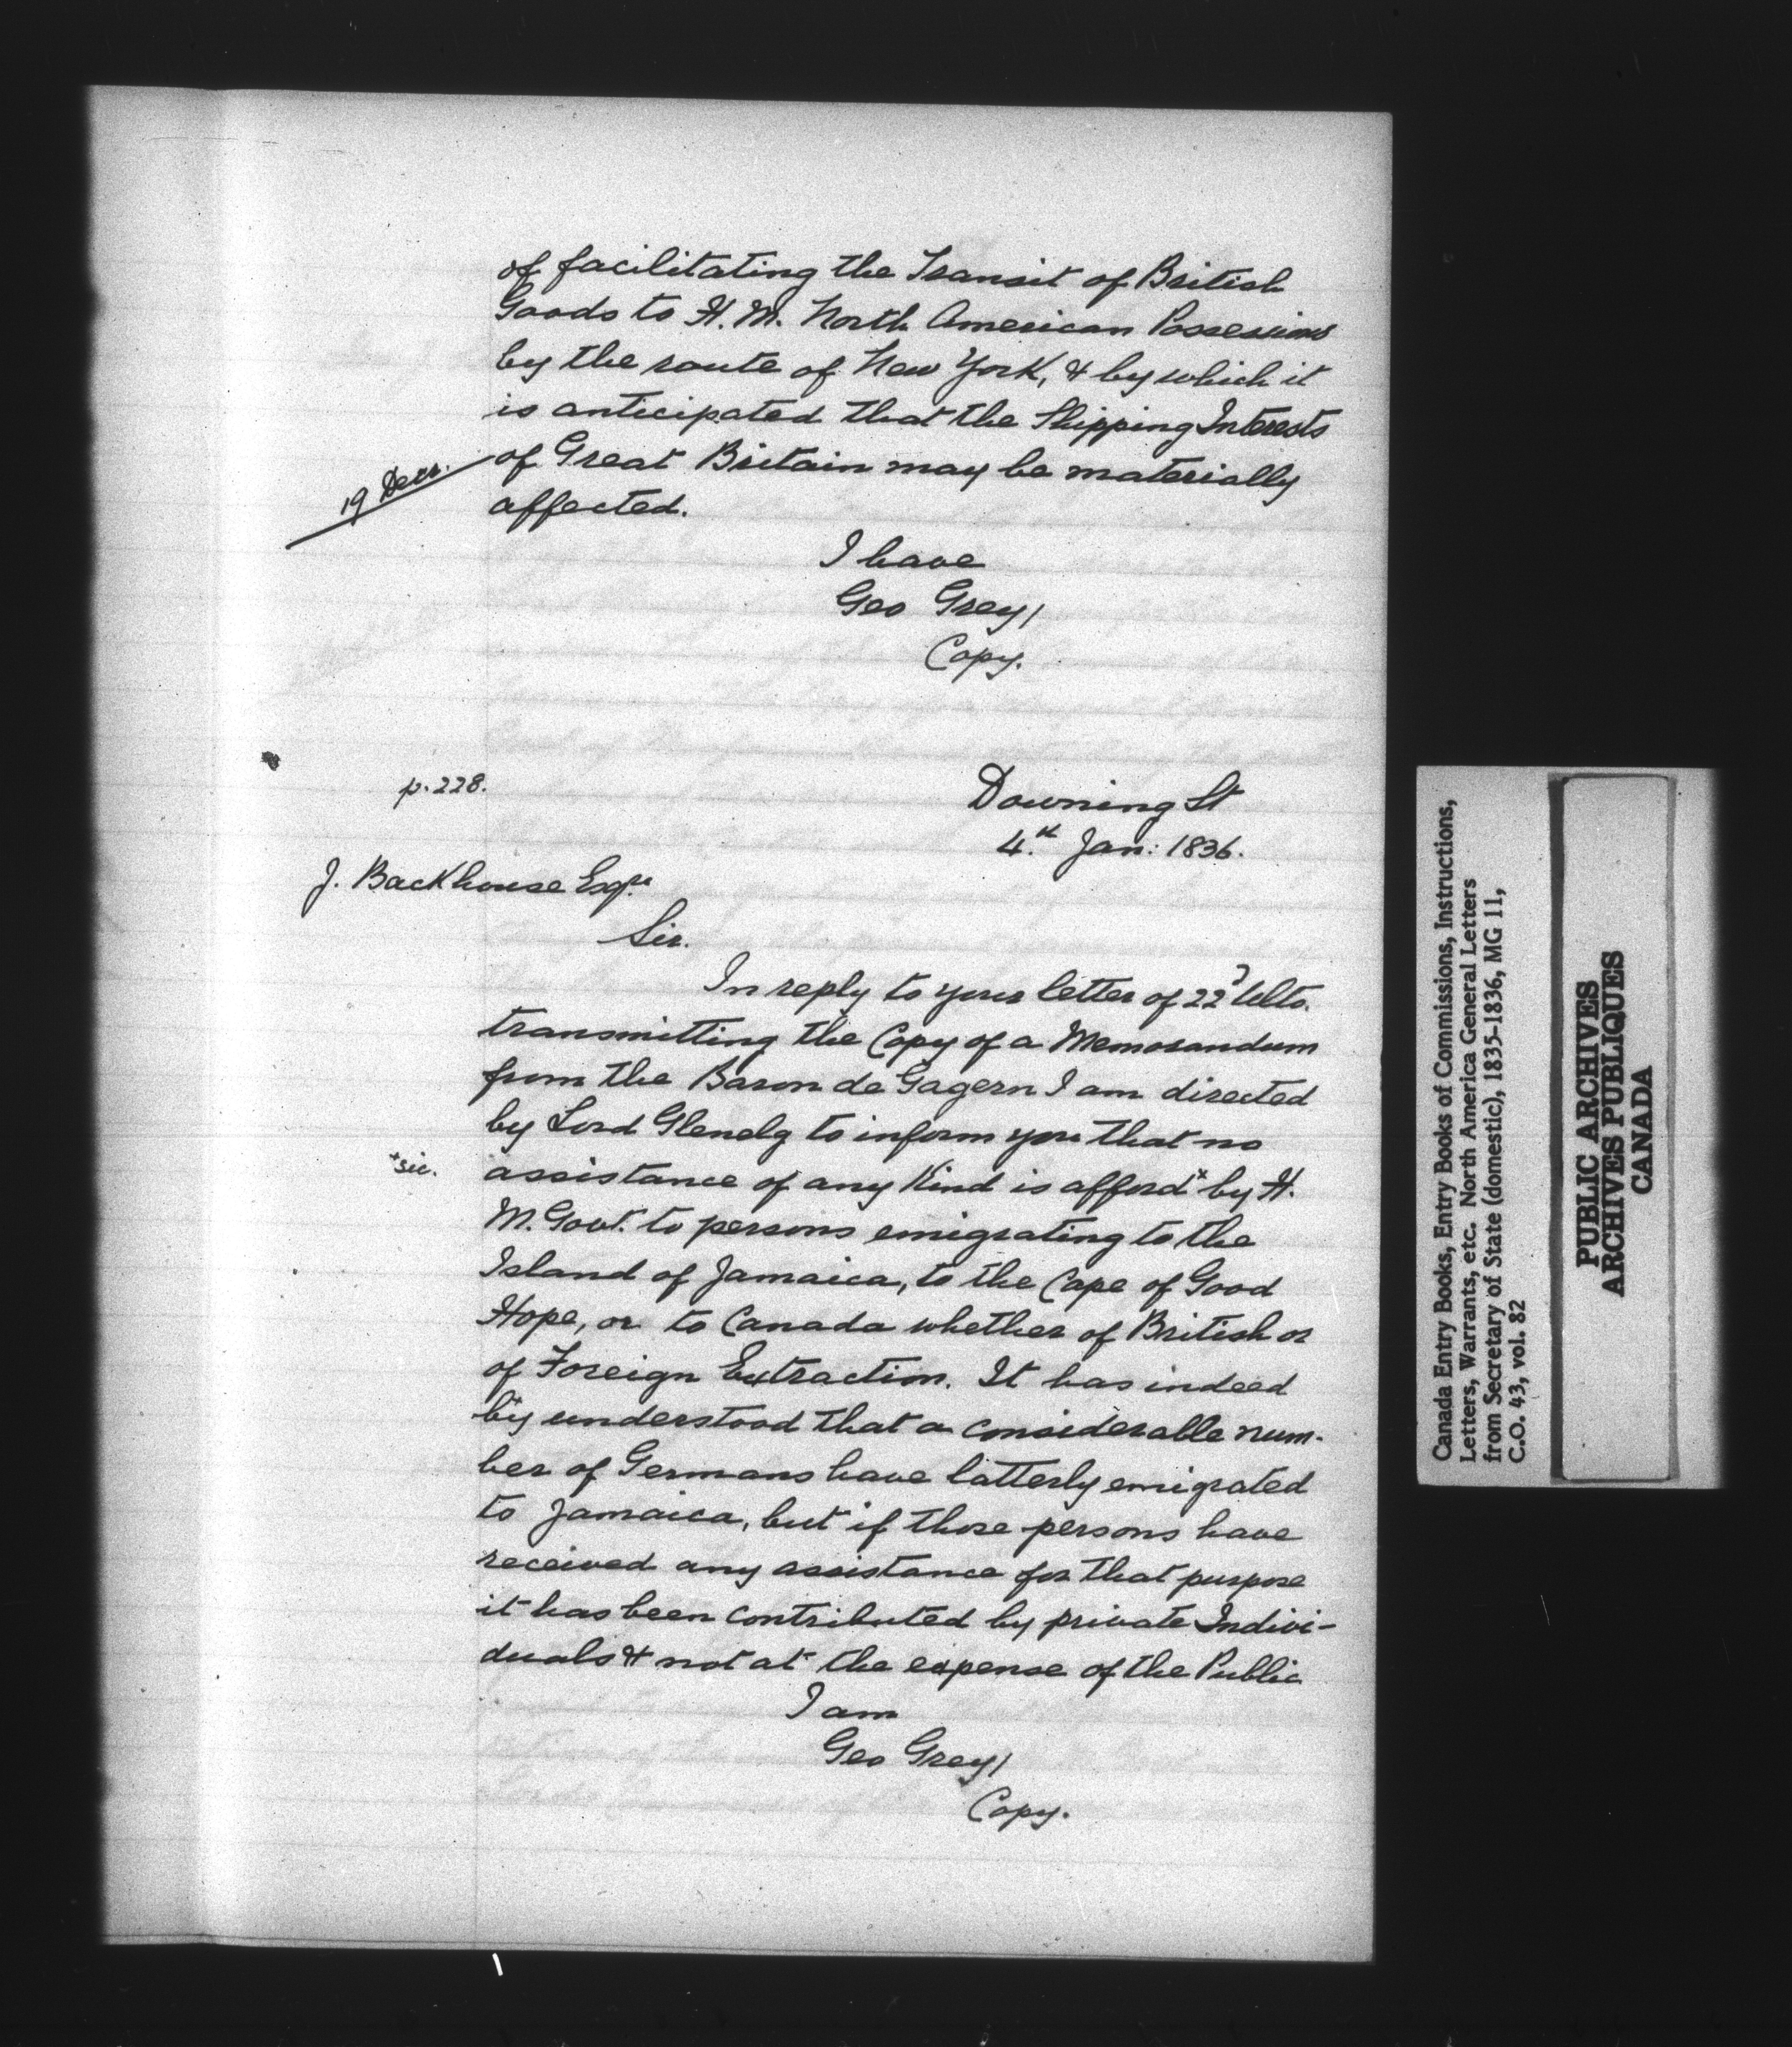 of facilitating the Transit of British
Goods to H. M. North American Possessions
by the route of New York, & by which it
is anticipated that the Shipping Interests
of Great Britain may be materially
19 Decr.
affected.
I have
Geo Grey/
Copy.
p. 228.
Downing St
4.th Jan: 1836.
J. Backhouse Esqre
Sir.
In reply to your letter of 22d Ulto.
transmitting the Copy of a Memorandum
from the Baron de Gagern I am directed
by Lord Glenelg to inform you that no
+sic.
assistance of any Kind is afford+ by H.
M. Govt. to persons emigrating to the
Island of Jamaica, to the Cape of Good
Hope, or to Canada whether of British or
of Foreign Extraction. It has indeed
by understood that a considerable num-
ber of Germans have latterly emigrated
to Jamaica, but if those persons have
received any assistance for that purpose
it has been contributed by private Indivi-
duals & not at the expense of the Public
I am
Geo Grey/
Copy.
Canada Entry Books, Entry Books of Commissions, Instructions,
Letters, Warrants, etc. North America General Letters
from Secretary of State (domestic), 1835-1836, MG 11,
C.O. 43, vol. 82
PUBLIC ARCHIVES
ARCHIVES PUBLIQUES
CANADA